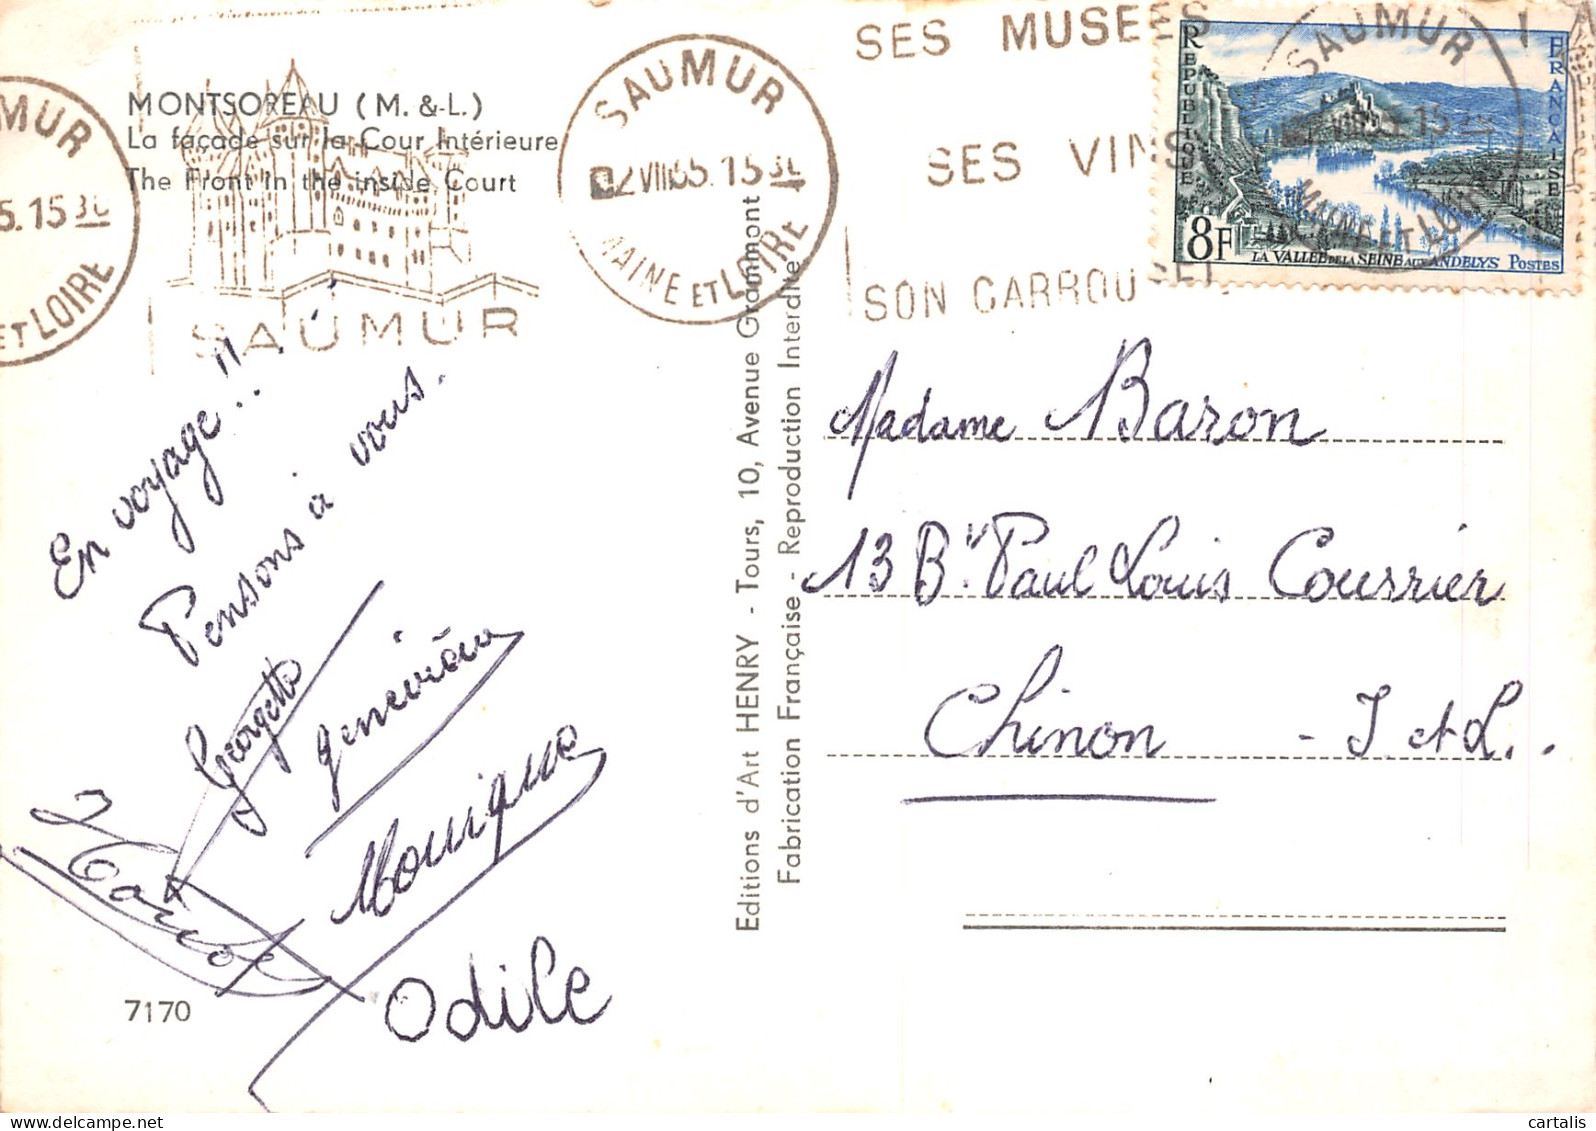 MONTSOREAU (M. & L.)
La façade sur la Cour Intérieure
The Front in the inside Court
SAUMUR
MAINE ET LOIRE
SAUMUR
SES MUSEES
SES VINS
SON CARROUSEL
REPUBLIQUE FRANCAISE
8F
LA VALLEE DE LA SEINE AUX ANDELYS POSTES
SAUMUR
MAINE ET LOIRE
MUR
5.15 30
ET LOIRE
En voyage..!!
Pensons à vous.
Georgette
Geneviève
Monique
Odile
7170
Editions d'Art HENRY - Tours, 10, Avenue Grammont
Fabrication Française - Reproduction Interdite
Madame Baron
13 Bd Paul Louis Courrier
Chinon - I et L.
cartalis